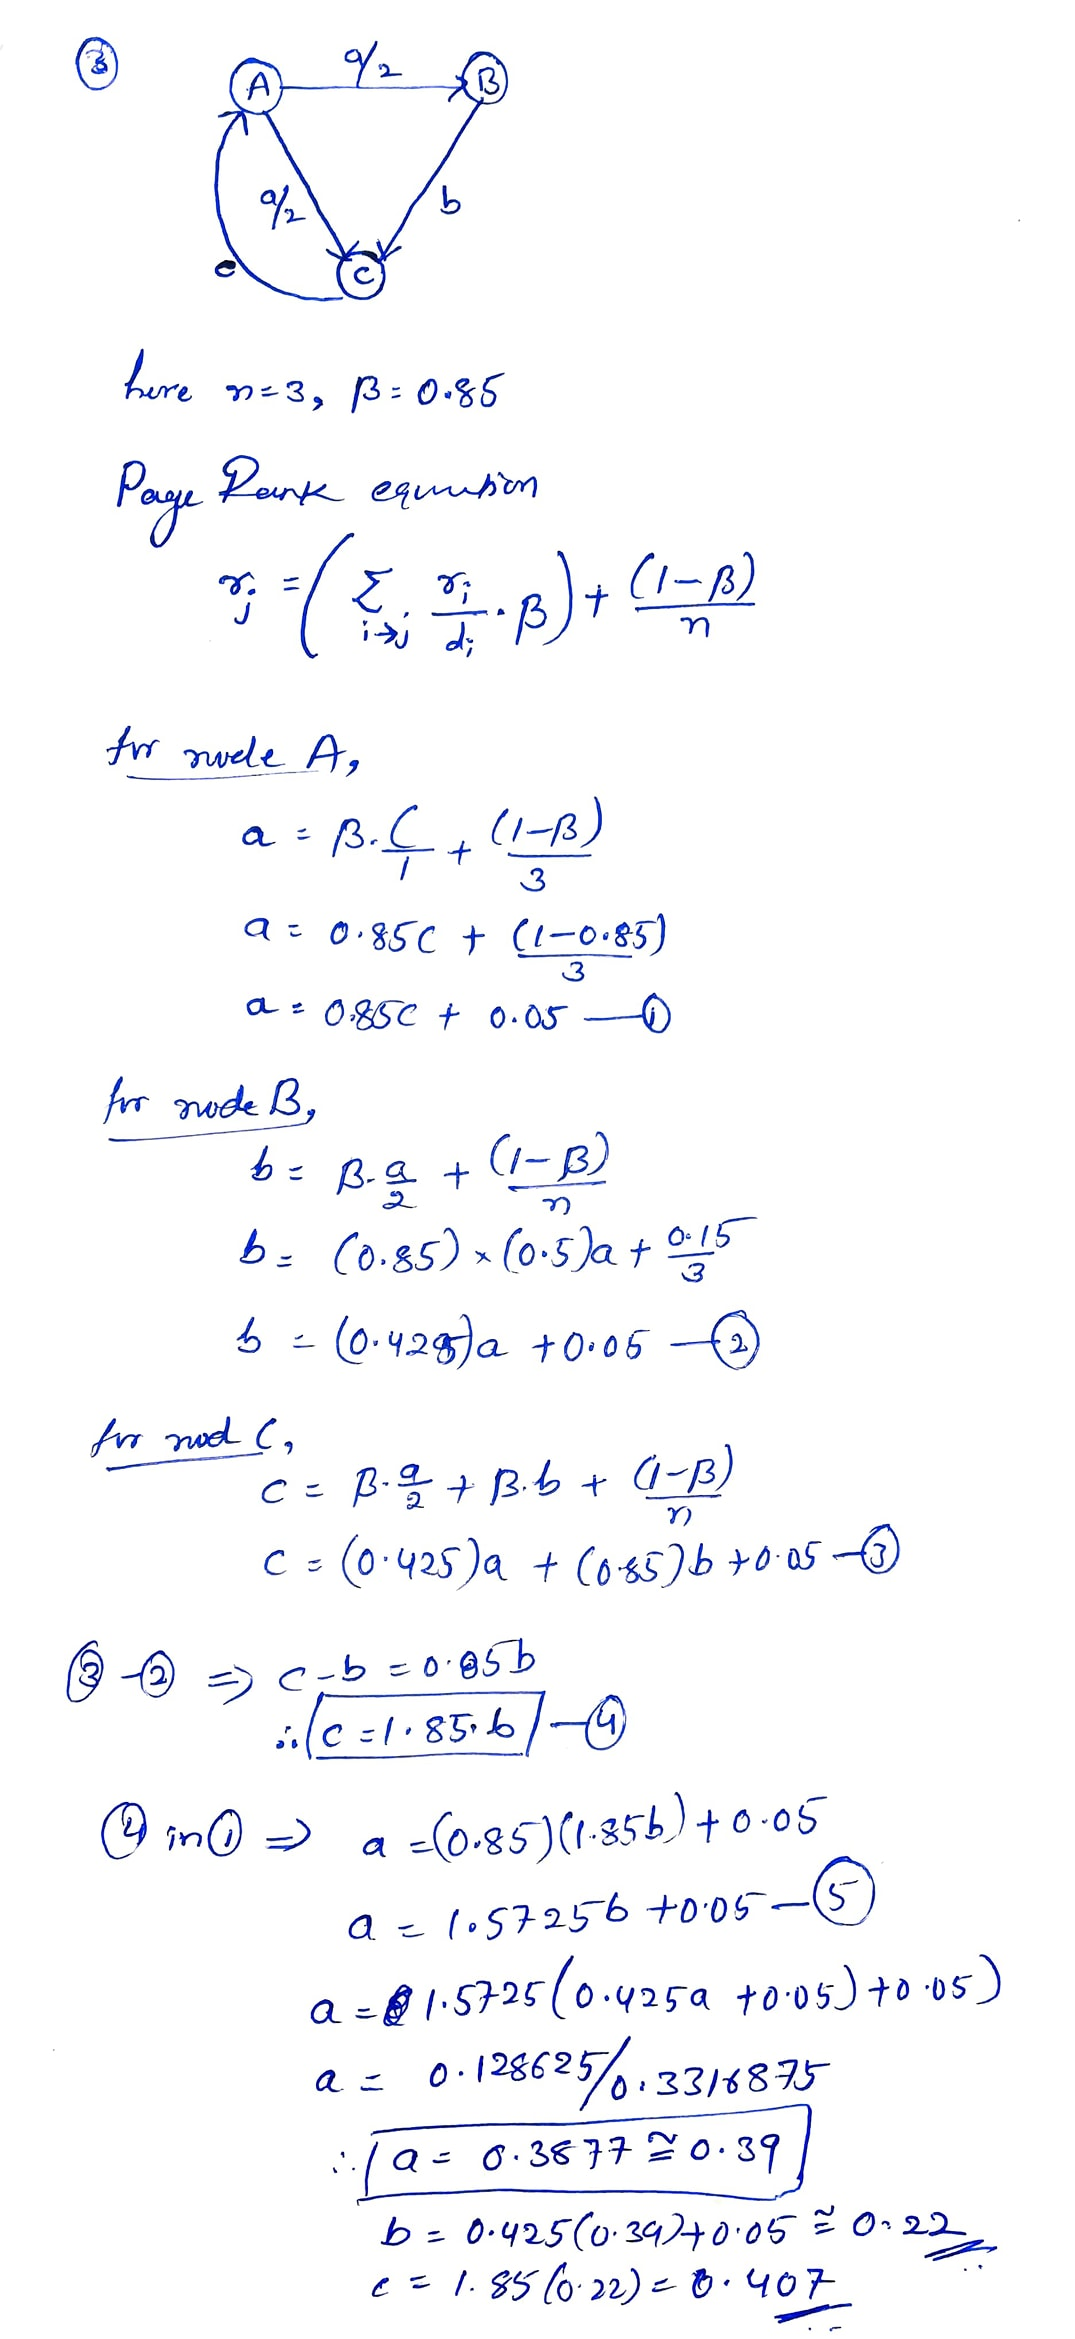 3
A a/2 B
a/2 b
c C
here n=3, β=0.85
Page Rank equation
rj = ( Σ i→j ri/di . β ) + (1-β)/n
for node A,
a = β. C/1 + (1-β)/3
a = 0.85C + (1-0.85)/3
a = 0.85C + 0.05 — ①
for node B,
b = β. a/2 + (1-β)/n
b = (0.85) × (0.5)a + 0.15/3
b = (0.425)a + 0.05 — ②
for nod C,
C = β. a/2 + β.b + (1-β)/n
C = (0.425)a + (0.85)b + 0.05 — ③
③ - ② ⇒ C - b = 0.85b
∴ C = 1.85. b — ④
④ in ① ⇒ a = (0.85)(1.85b) + 0.05
a = 1.5725b + 0.05 — ⑤
a = 1.5725(0.425a + 0.05) + 0.05)
a = 0.128625/0.3316875
∴ a = 0.3877 ≅ 0.39
b = 0.425(0.39) + 0.05 ≅ 0.22
c = 1.85(0.22) = 0.407